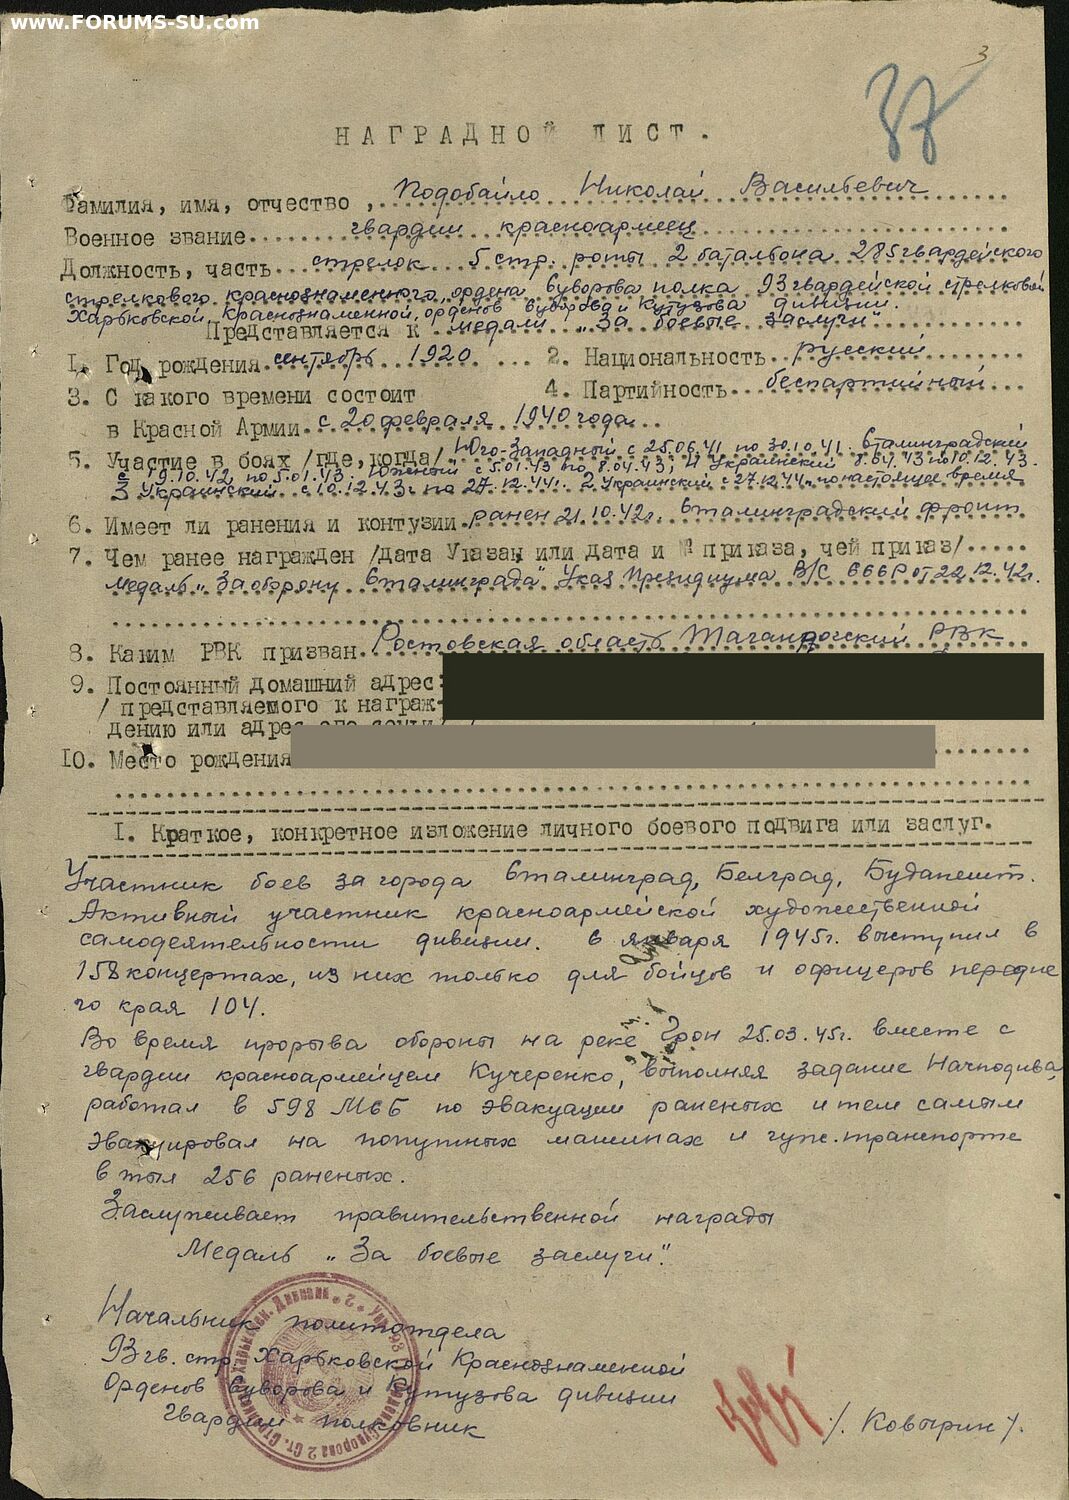 www.FORUMS-SU.com
3
37
НАГРАДНОЙ ЛИСТ.
Фамилия, имя, отчество, Подобайло Николай Васильевич
Военное звание гвардии красноармеец
Должность, часть стрелок 5 стр. роты 2 батальона 285 гвардейского
стрелкового краснознаменного, ордена Суворова полка 93 гвардейской стрелковой
Харьковской, Краснознаменной, орденов Суворова и Кутузова дивизии.
Представляется к медали "За боевые заслуги".
1. Год рождения сентябрь 1920 2. Национальность русский
3. С какого времени состоит 4. Партийность беспартийный
в Красной Армии с 20 февраля 1940 года
5. Участие в боях /где, когда/ Юго-Западный с 25.06.41 по 30.10.41. Сталинградский
с 19.10.42 по 5.01.43. Южный с 5.01.43 по 8.04.43; Украинский 8.04.43 по 10.12.43.
3 Украинский с 10.12.43г. по 27.12.44г. 2 Украинский с 27.12.44 по настоящее время
6. Имеет ли ранения и контузии ранен 21.10.42г. Сталинградский фронт
7. Чем ранее награжден /дата Указа или дата и № приказа, чей приказ/
Медаль "За оборону Сталинграда" Указ Президиума В/С СССР от 22.12.42г.
8. Каким РВК призван Ростовская область Таганрогский РВК
9. Постоянный домашний адрес:
/представляемого к награж-
дению или адрес его семьи/
10. Место рождения
I. Краткое, конкретное изложение личного боевого подвига или заслуг.
Участник боев за города Сталинград, Белград, Будапешт.
Активный участник красноармейской художественной
самодеятельности дивизии. В января 1945г. выступил в
158 концертах, из них только для бойцов и офицеров передне
го края 104.
Во время прорыва обороны на реке Грон 25.03.45г. вместе с
гвардии красноармейцем Кучеренко, выполняя задание Начподива,
работал в 598 МСБ по эвакуации раненых и тем самым
эвакуировал на попутных машинах и гуж. транспорте
в тыл 256 раненых.
Заслуживает правительственной награды
Медаль "За боевые заслуги".
Начальник политотдела
93 гв. стр. Харьковской Краснознаменной
Орденов Суворова и Кутузова дивизии
Гвардии полковник /Ковырин/.